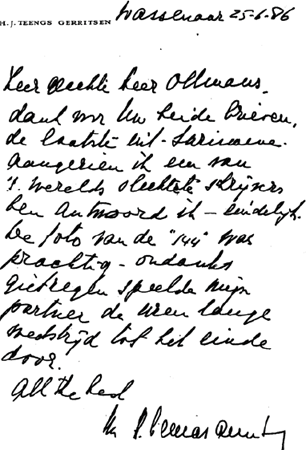 H. J. TEENGS GERRITSEN
Wassenaar 25-6-86
Zeer geachte heer Oltmans,
dank voor Uw beide brieven,
de laatste uit Suriname.
Aangezien ik een van
's werelds slechtste schrijvers
ben antwoord ik – eindelijk.
De foto van de "144" was
prachtig – ondanks
gietregen speelde mijn
partner de uren lange
wedstrijd tot het einde
door.
All the best